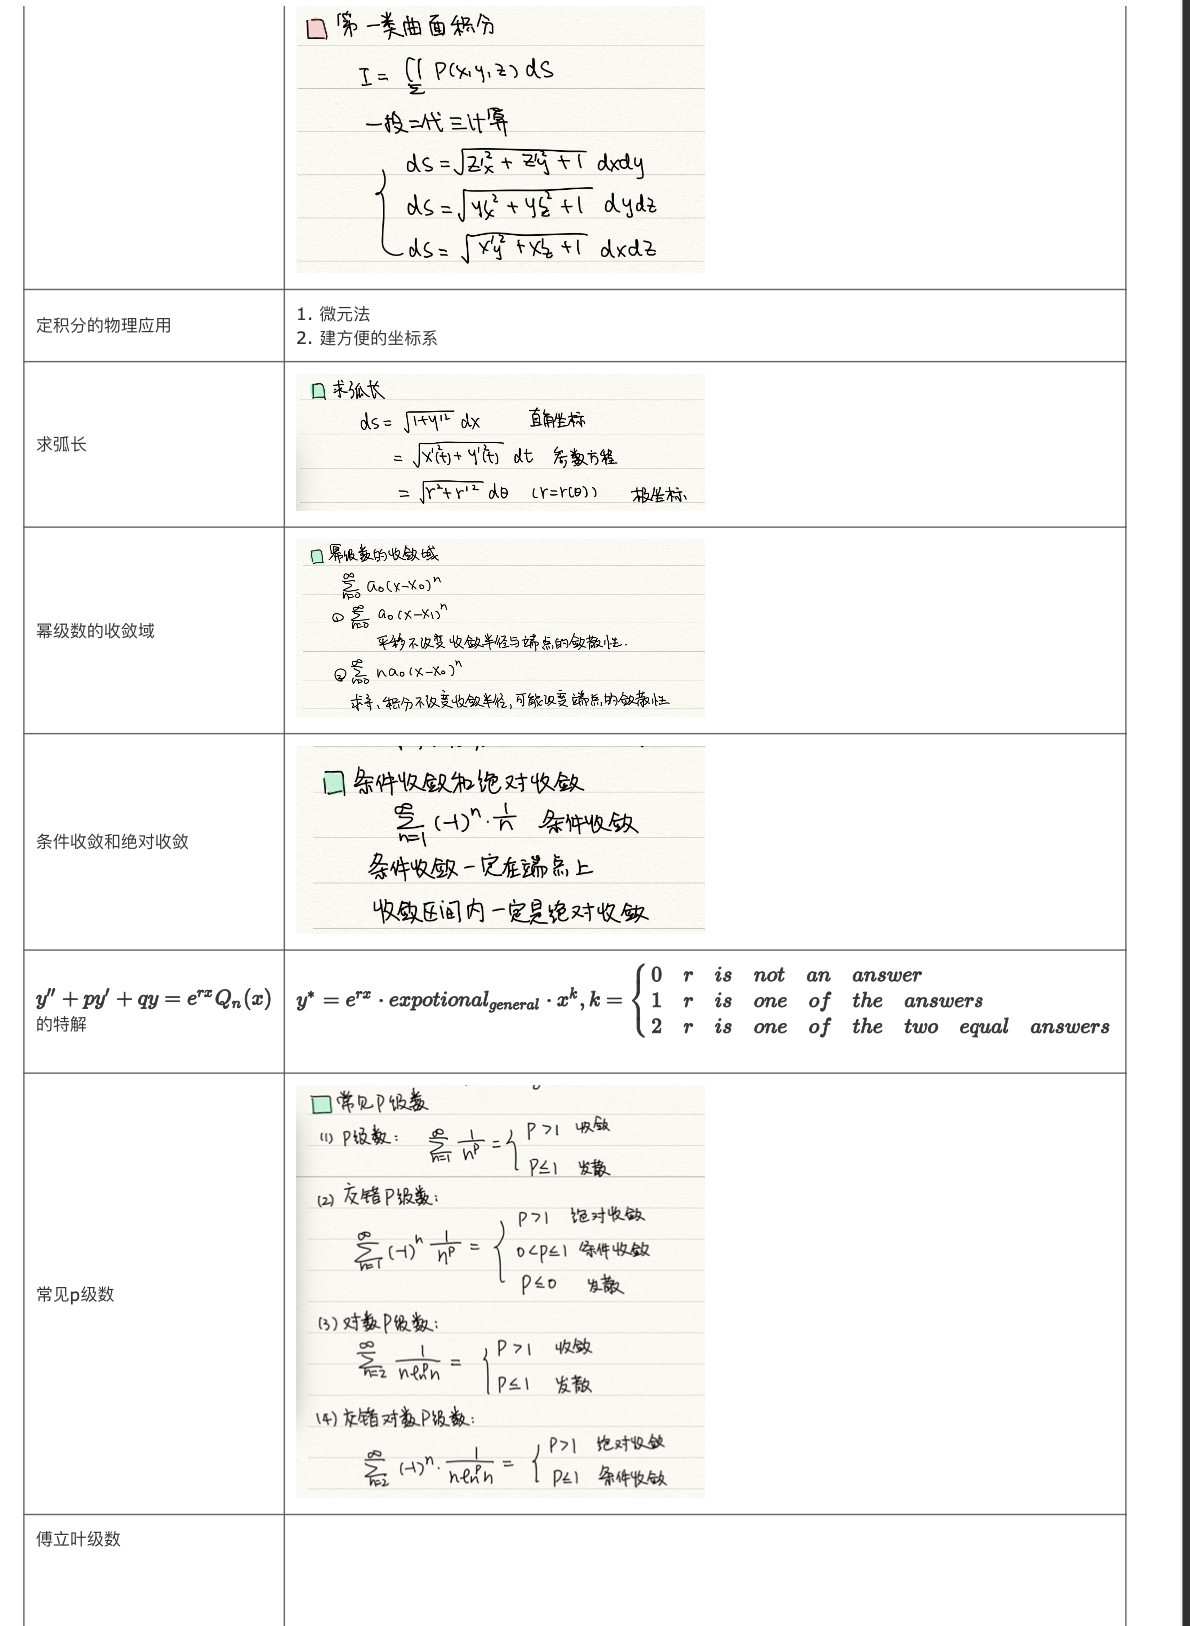 第一类曲面积分
I = ∬_Σ P(x,y,z) dS
一投二代三计算
dS = √(z'x² + z'y² + 1) dxdy
dS = √(y'x² + y'z² + 1) dydz
dS = √(x'y² + x'z + 1) dxdz
定积分的物理应用
1. 微元法
2. 建方便的坐标系
求弧长
求弧长
ds = √(1+y'²) dx 直角坐标
= √(x'²(t) + y'²(t)) dt 参数方程
= √(r²+r'²) dθ (r=r(θ)) 极坐标
幂级数的收敛域
幂级数的收敛域
∑_{n=0}^{∞} a₀(x-x₀)ⁿ
① ∑_{n=0}^{∞} a₀(x-x₁)ⁿ
平移不改变收敛半径与端点的敛散性.
② ∑_{n=0}^{∞} na₀(x-x₀)ⁿ
求导、积分不改变收敛半径,可能改变端点的敛散性
条件收敛和绝对收敛
条件收敛和绝对收敛
∑_{n=1}^{∞} (-1)ⁿ · 1/n 条件收敛
条件收敛一定在端点上
收敛区间内一定是绝对收敛
y'' + py' + qy = e^{rx}Q_n(x)
的特解
y* = e^{rx} · expotional_{general} · x^k, k = {
0 r is not an answer
1 r is one of the answers
2 r is one of the two equal answers
常见p级数
常见P级数
(1) P级数: ∑_{n=1}^{∞} 1/n^p = {
P>1 收敛
P≤1 发散
(2) 交错P级数:
∑_{n=1}^{∞} (-1)ⁿ 1/n^p = {
P>1 绝对收敛
0<P≤1 条件收敛
P≤0 发散
(3) 对数P级数:
∑_{n=2}^{∞} 1/(n ln^p n) = {
P>1 收敛
P≤1 发散
(4) 交错对数P级数:
∑_{n=2}^{∞} (-1)ⁿ · 1/(n ln^p n) = {
P>1 绝对收敛
P≤1 条件收敛
傅立叶级数